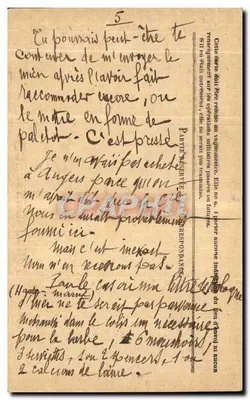 5
Tu pourrais peut-être te
contenter de m'envoyer le
mien après l'avoir fait
raccommoder encore, ou
le mettre en forme de
paletot - C'est pressé
Je n'avais pas acheté
à Angers parce qu'on
m'a
nous probablement
fourni ici -
mais c'est inexact
nous n'en recevrons pas -
(Haute-Marne)
ne le serait pas
mettre dans le colis un nécessaire
pour la barbe, 6 mouchoirs
3 serviettes, 1 ou 2 , 1 ou
2 caleçons de laine.
Cette carte doit être remise au vaguemestre. Elle ne doit porter aucune indication du lieu d'envoi ni aucun
renseignement sur les opérations militaires passées ou futures.
S'il en était autrement, elle ne serait pas transmise.
PARTIE RÉSERVÉE À LA CORRESPONDANCE